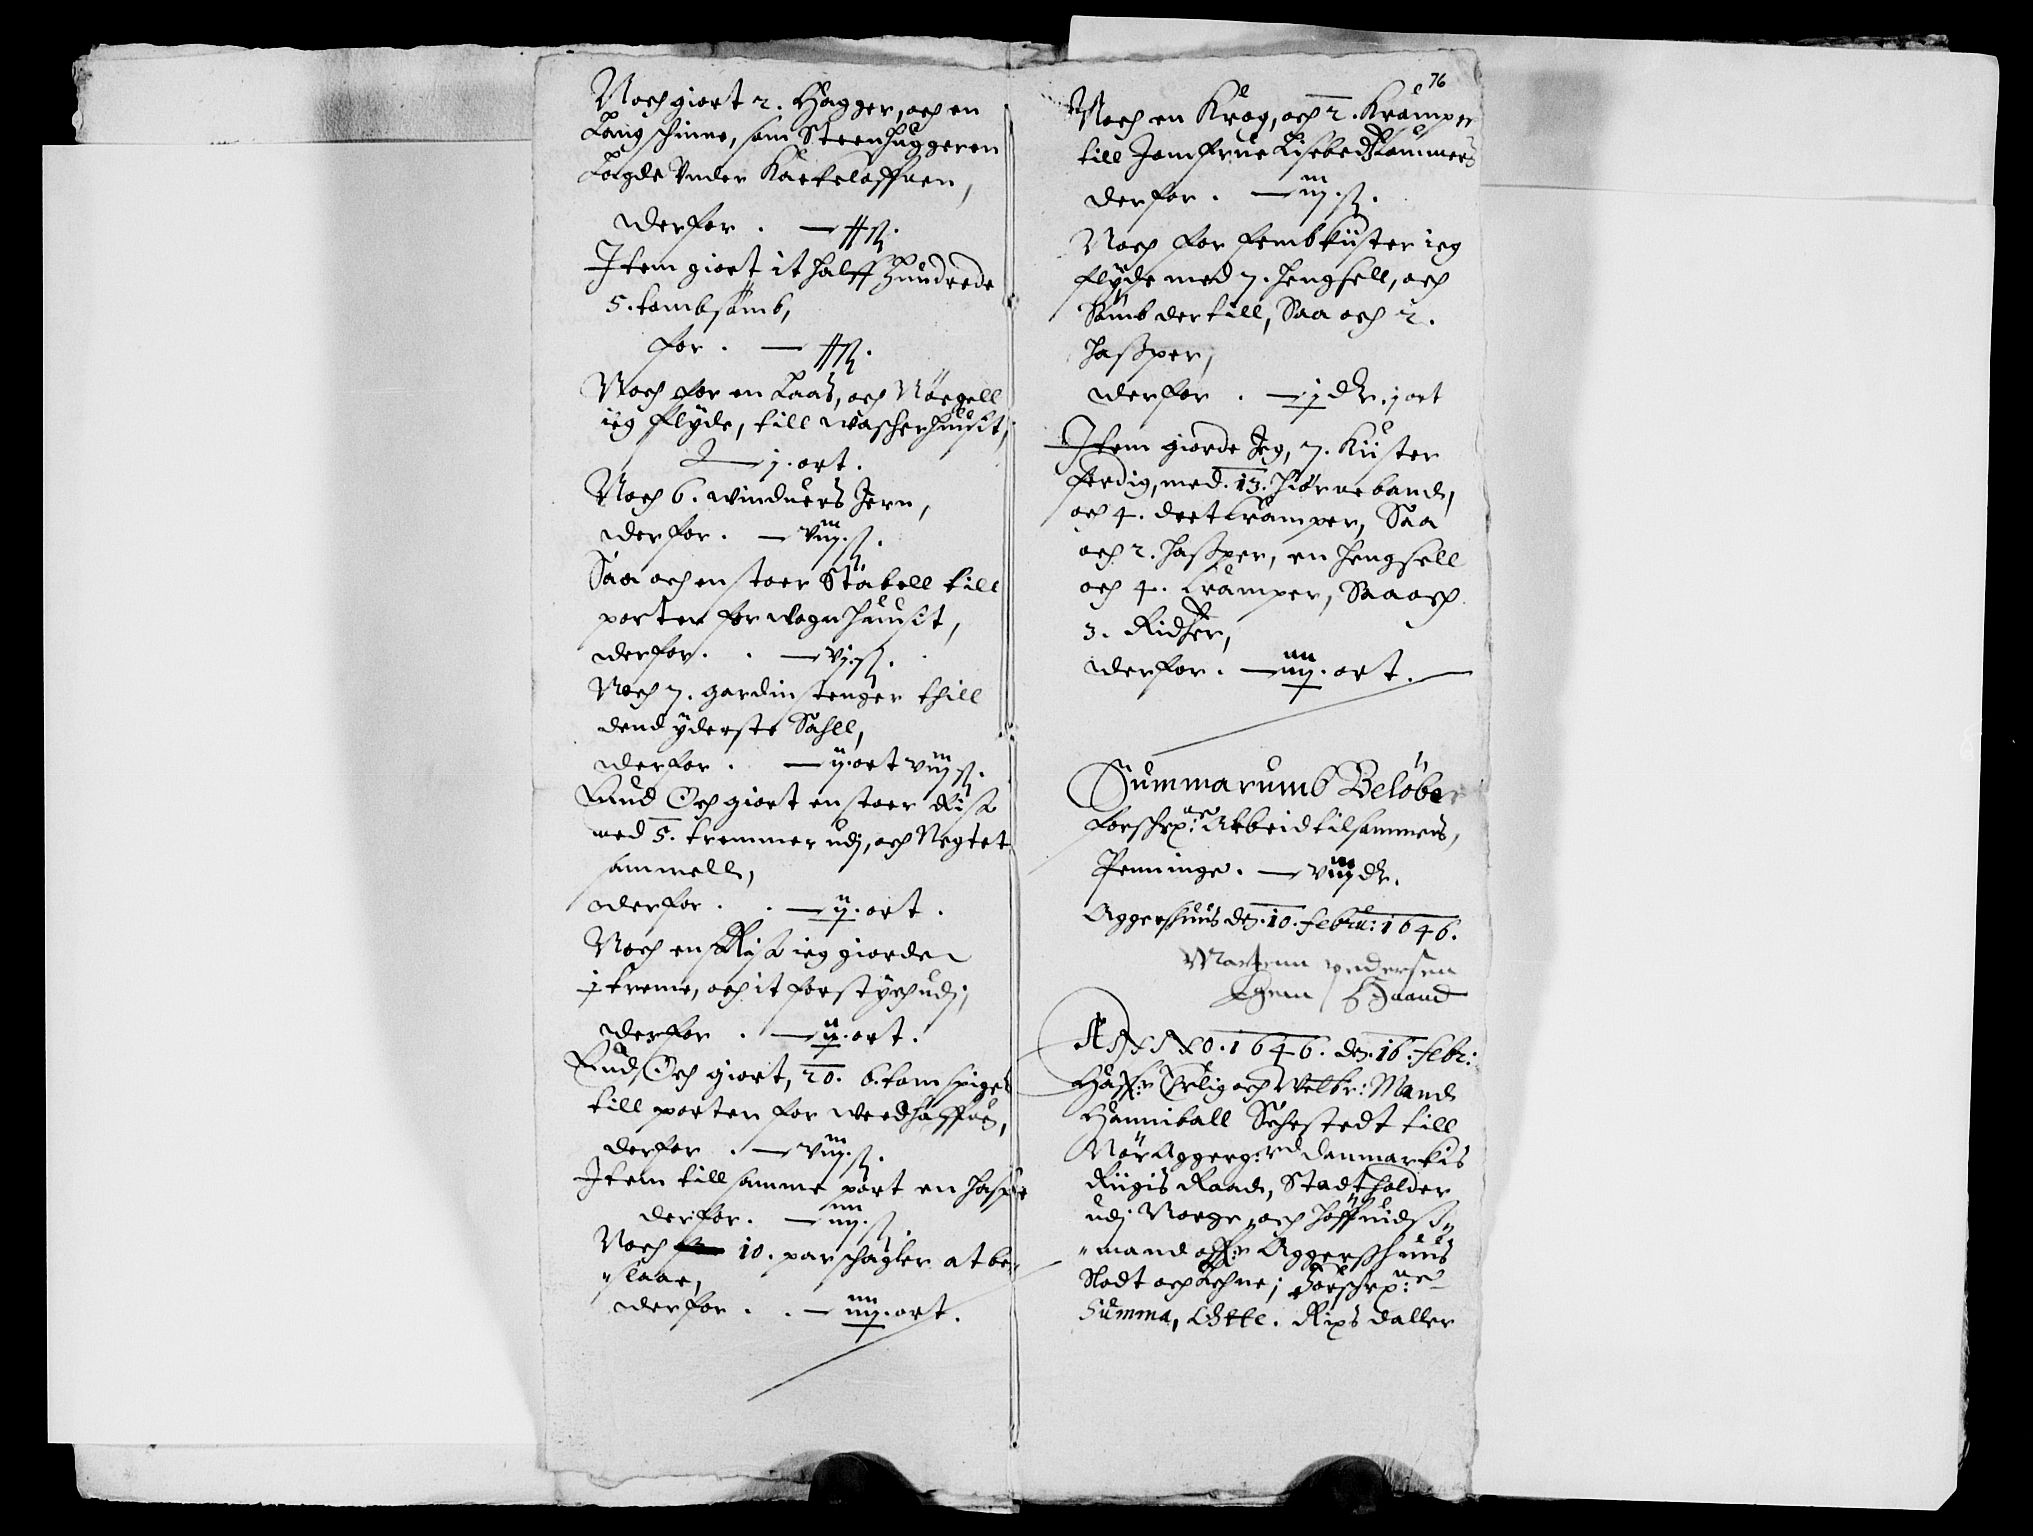 Noch giort 2. Hager, och en
Lang schinne, som Steenhuggeren
Lagde Vnder Kackeloffuen,
derfor . — ß.
Item giort it halff Hundrede
5. tomb somb,
for . — ß.
Noch for en Laas, och Nöegell
ieg flyde, till wascherhuusit,
— j. ort.
Noch 6. winduers Jern,
derfor . — viij. ß.
Saa och en stoer Stabell till
porten for Wognhuusit,
derfor . . — vj. ß.
Noch 7. gardin stenger thill
dend yderste Sahll,
derfor . — ij. ort viij ß.
End Och giort en stoer Rist
med 5. tremmer udj, och Negtet
sammell,
derfor . . — ij. ort.
Noch en Rist ieg giorde
j treme, och it forstych udj,
derfor . — ij. ort.
End Och giort, 20. 6. tom spiger
till porten for weedhaffuen,
derfor . — viij. ß.
Item till samme port en haspe
derfor . — iiij. ß.
Noch 10. par schagler at be-
"slaae,
derfor . . — iiij. ort.
76
Noch en Krog, och 2. Kramper
till Jomfrue Lisebeds Kammers
derfor . — iij. ß.
Noch for fembkister ieg
flyde med 7. hengsell, och
Sömb der till, Saa och 2.
hasper,
derfor . — j dr. j ort
Item giorde Jeg, 7. Kister
ferdig, med 13. hiörne band,
och 4. deet kramper, Saa
och 2. hasper, en hengsell
och 4. kramper, Saa och
3. Ridher,
derfor . — iiij. ort.
Summarumb Belöber
forschr: Arbeid tilsammens,
Penninge . — viij dr.
Aggershuus den 10. febru: 1646.
Mortenn pedersen
Egenn Haand
ANNO . 1646 . den 16. febr:
Haffr Erlig och Welbr: Mand
Hanniball Sehestedt till
Nör Aggerg: rd danmarkis
Riigis Raad, Stadtholder
udj Norge, och höffuidß"
"mand offr Aggershuus
Slodt och Lehne; forschr:
Summa, Rixs daller